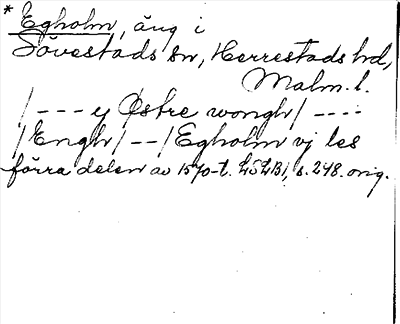 * Egholm, äng i
Sövestads sn, Herrestads hd,
Malm. l.
/ - - - ej Östre wongh / - - - -
/ Engh / - - / Egholm vj les
förra delen av 1570-t. LÖLB1, s. 248. orig.